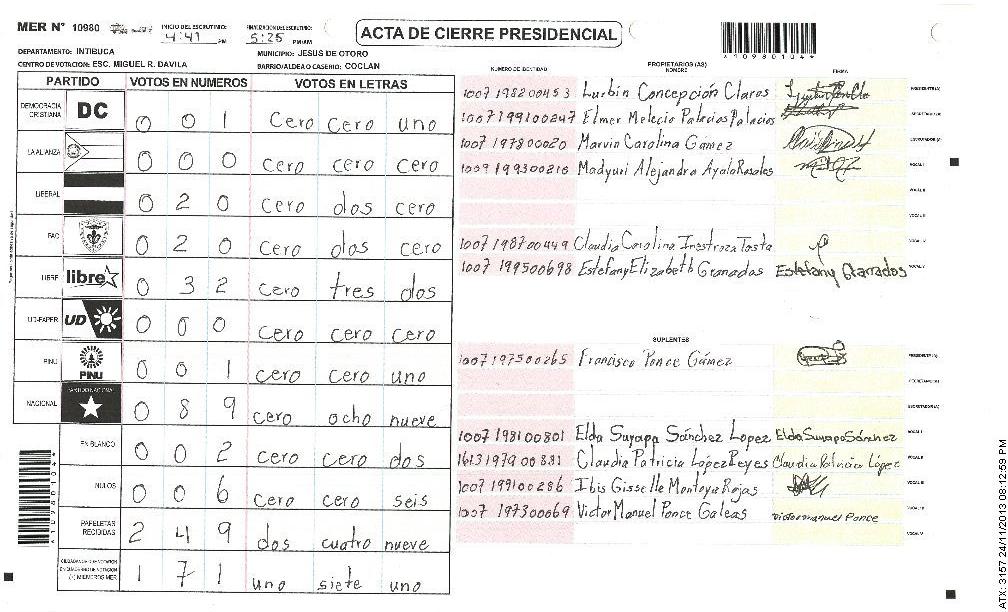 MER N° 10980 INICIO DEL ESCRUTINIO: 4:41 PM FINALIZACION DEL ESCRUTINIO: 5:25 PM/AM ACTA DE CIERRE PRESIDENCIAL
*10980104*
DEPARTAMENTO: INTIBUCA MUNICIPIO: JESUS DE OTORO
CENTRO DE VOTACION: ESC. MIGUEL R. DAVILA BARRIO/ALDEA O CASERIO: COCLAN
PARTIDO VOTOS EN NUMEROS VOTOS EN LETRAS
DEMOCRACIA CRISTIANA DC 0 0 1 Cero Cero uno
LA ALIANZA 0 0 0 cero cero cero
LIBERAL 0 2 0 cero dos cero
PAC 0 2 0 cero dos cero
LIBRE libre 0 3 2 cero tres dos
UD-FAPER UD 0 0 0 cero cero cero
PINU PINU 0 0 1 cero cero uno
NACIONAL PARTIDO NACIONAL 0 8 9 cero ocho nueve
EN BLANCO 0 0 2 cero cero dos
NULOS 0 0 6 cero cero seis
PAPELETAS RECIBIDAS 2 4 9 dos cuatro nueve
(+) MIEMBROS MER 1 7 1 uno siete uno
*10980104*
NUMERO DE IDENTIDAD PROPIETARIOS (AS) NOMBRE FIRMA
1007 198200453 Lurbin Concepción Claros PRESIDENTE (A)
1007199100247 Elmer Melecio Palacios Palacios SECRETARIO (A)
1007 197800020 Marvin Carolina Gamez ESCRUTADOR (A)
1009 199300210 Madyuri Alejandra Ayala Rosales VOCAL I
VOCAL II
VOCAL III
1007 198700449 Claudia Carolina Inestroza Tosta VOCAL IV
1007 199500698 Estefany Elizabeth Granados Estefany Granados VOCAL V
SUPLENTES
1007197500265 Francisco Ponce Gámez PRESIDENTE (A)
SECRETARIO (A)
ESCRUTADOR (A)
1007 198100801 Elda Suyapa Sánchez Lopez Elda Suyapa Sánchez VOCAL I
1613197900881 Claudia Patricia López Reyes Claudia Patricia López VOCAL II
1007 199100286 Ibis Gisselle Montoya Rojas VOCAL III
1007 197300069 Victor Manuel Ponce Galeas victor manuel Ponce VOCAL IV
VOCAL V
ATX: 3157 24/11/2013 08:12:59 PM